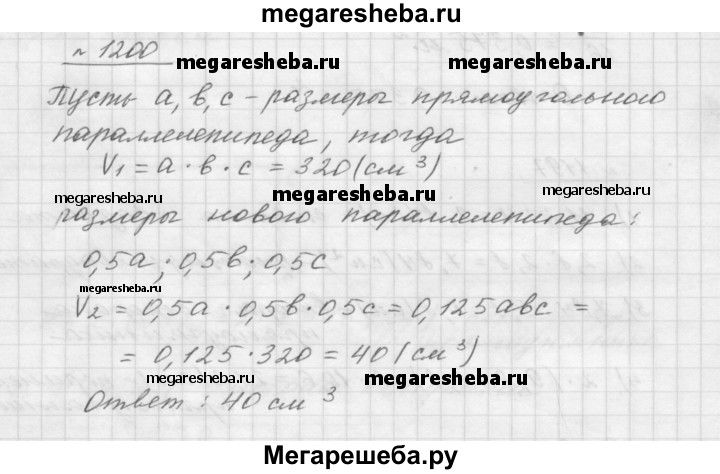 megaresheba.ru
№ 1200
megaresheba.ru
megaresheba.ru
Пусть a, b, c – размеры прямоугольного
параллелепипеда, тогда
V₁ = a · b · c = 320 (см³)
megaresheba.ru
megaresheba.ru
megaresheba.ru
размеры нового параллелепипеда:
0,5a; 0,5b; 0,5c
megaresheba.ru
V₂ = 0,5a · 0,5b · 0,5c = 0,125abc =
= 0,125 · 320 = 40 (см³)
megaresheba.ru
megaresheba.ru
Ответ: 40 см³
Мегарешеба.ру